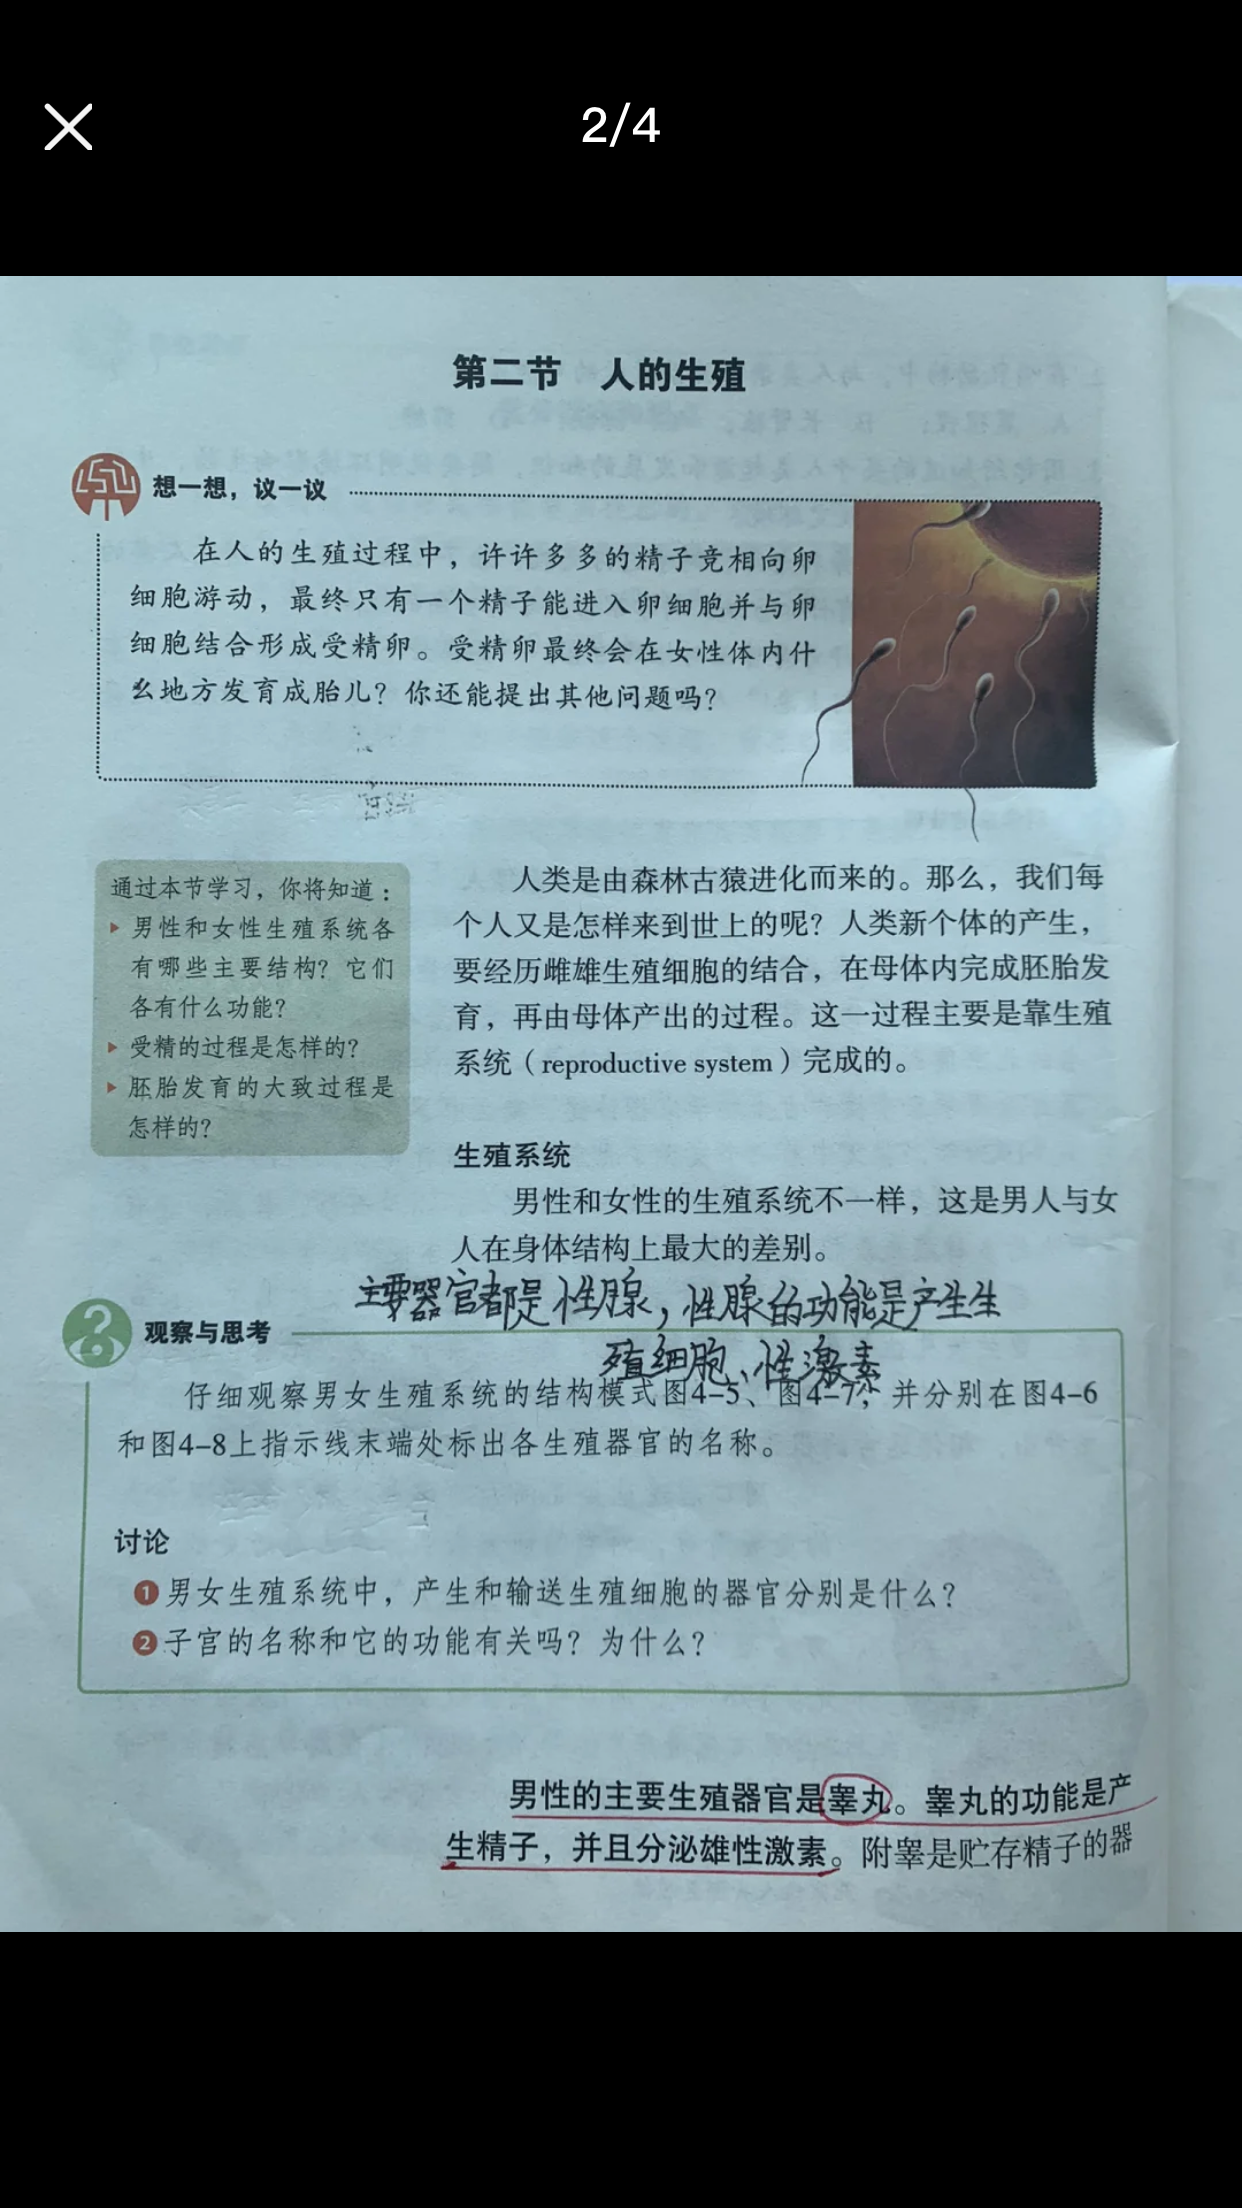 2/4
第二节 人的生殖
想一想，议一议
在人的生殖过程中，许许多多的精子竞相向卵
细胞游动，最终只有一个精子能进入卵细胞并与卵
细胞结合形成受精卵。受精卵最终会在女性体内什
么地方发育成胎儿？你还能提出其他问题吗？
通过本节学习，你将知道：
男性和女性生殖系统各
有哪些主要结构？它们
各有什么功能？
受精的过程是怎样的？
胚胎发育的大致过程是
怎样的？
人类是由森林古猿进化而来的。那么，我们每
个人又是怎样来到世上的呢？人类新个体的产生，
要经历雌雄生殖细胞的结合，在母体内完成胚胎发
育，再由母体产出的过程。这一过程主要是靠生殖
系统（reproductive system）完成的。
生殖系统
男性和女性的生殖系统不一样，这是男人与女
人在身体结构上最大的差别。
主要器官都是性腺，性腺的功能是产生生
殖细胞、性激素
观察与思考
仔细观察男女生殖系统的结构模式图4-5、图4-7，并分别在图4-6
和图4-8上指示线末端处标出各生殖器官的名称。
讨论
1 男女生殖系统中，产生和输送生殖细胞的器官分别是什么？
2 子宫的名称和它的功能有关吗？为什么？
男性的主要生殖器官是睾丸。睾丸的功能是产
生精子，并且分泌雄性激素。附睾是贮存精子的器